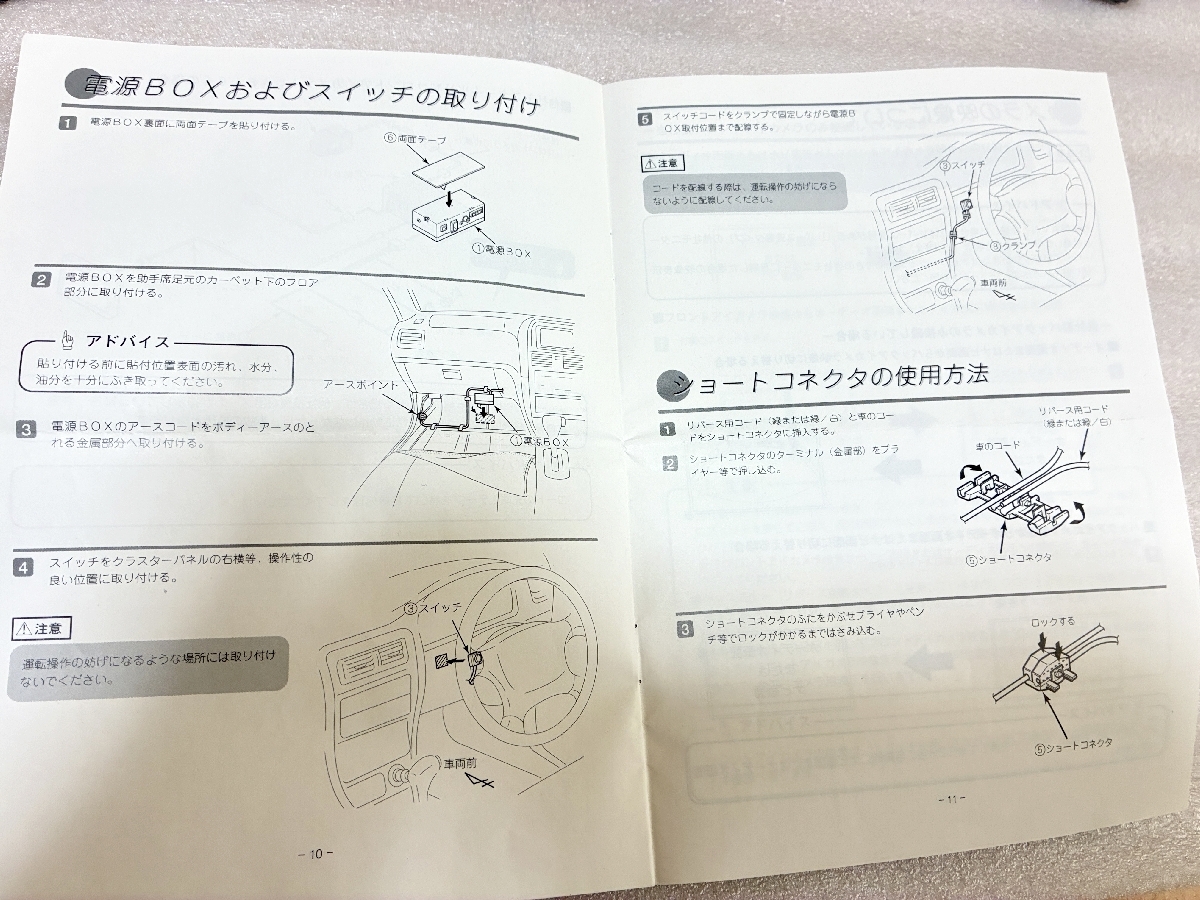 電源BOXおよびスイッチの取り付け
1 電源BOX裏面に両面テープを貼り付ける。
⑥両面テープ
①電源BOX
2 電源BOXを助手席足元のカーペット下のフロア
部分に取り付ける。
アドバイス
貼り付ける前に貼付位置表面の汚れ、水分、
油分を十分にふき取ってください。
アースポイント
①電源BOX
3 電源BOXのアースコードをボディーアースのと
れる金属部分へ取り付ける。
4 スイッチをクラスターパネルの右横等、操作性の
良い位置に取り付ける。
③スイッチ
注意
運転操作の妨げになるような場所には取り付け
ないでください。
車両前
-10-
5 スイッチコードをクランプで固定しながら電源B
OX取付位置まで配線する。
注意
コードを配線する際は、運転操作の妨げになら
ないように配線してください。
③スイッチ
③クランプ
車両前
ショートコネクタの使用方法
1 リバース用コード（緑または緑／白）と車のコー
ドをショートコネクタに挿入する。
2 ショートコネクタのターミナル（金属部）をプラ
イヤー等で押し込む。
リバース用コード
（緑または緑／白）
車のコード
⑤ショートコネクタ
3 ショートコネクタのふたをかぶせプライヤやペン
チ等でロックがかかるまではさみ込む。
ロックする
⑤ショートコネクタ
-11-